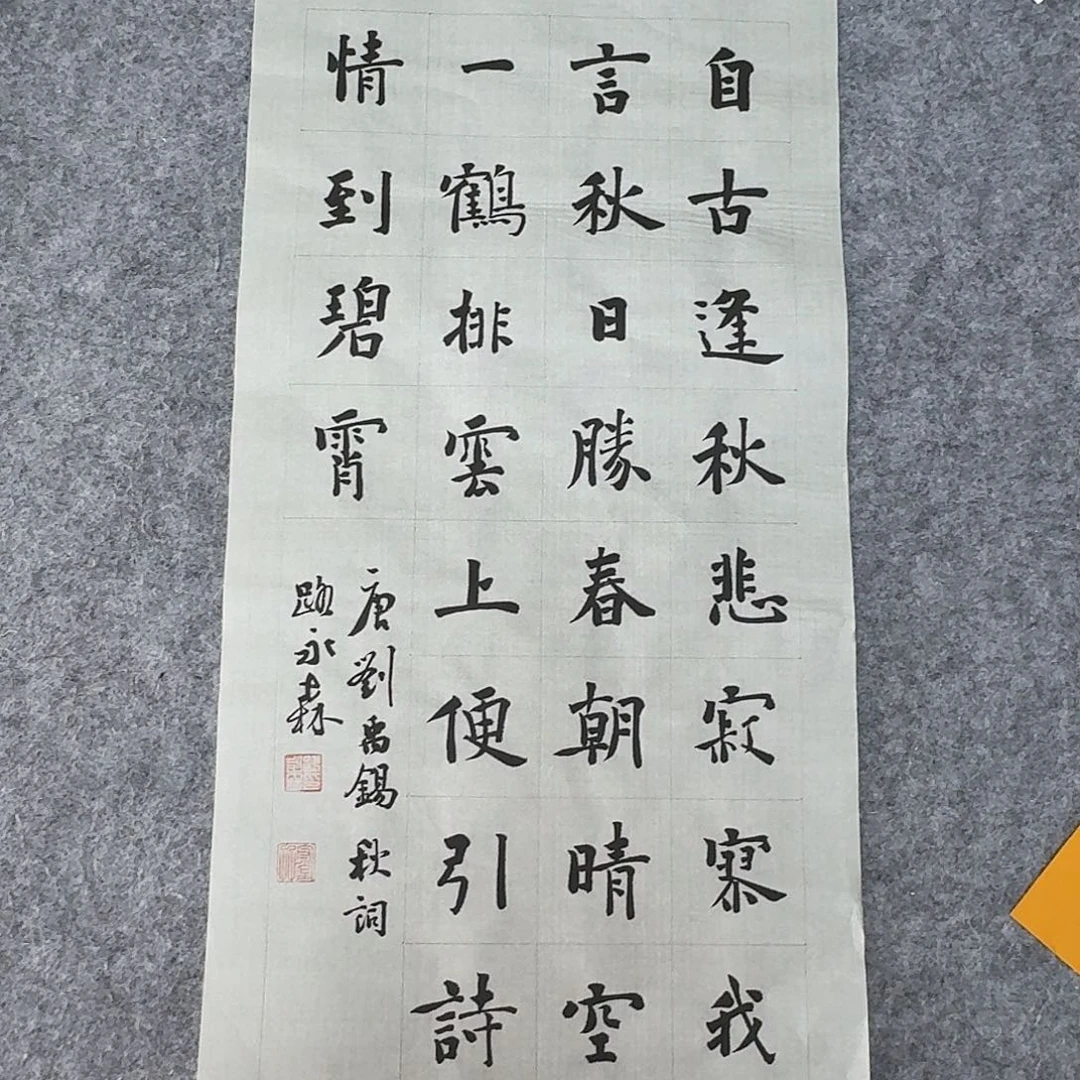 自古逢秋悲寂寥我
言秋日勝春朝晴空
一鶴排雲上便引詩
情到碧霄
唐劉禹錫秋詞
路永森